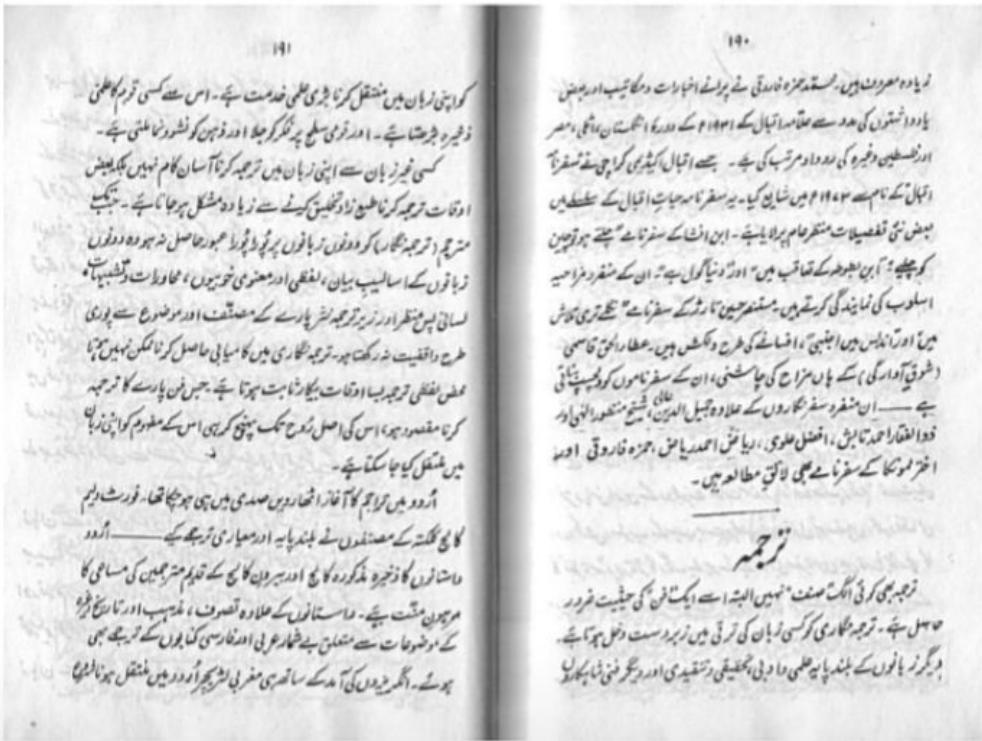 ۱۹۰
زیادہ معروف ہیں۔ محمد حمزہ فاروقی نے پرانے اخبارات و مکاتیب اور بعض
یادداشتوں کی مدد سے علامہ اقبال کے ۱۹۳۱ء کے دورۂ انگلستان، اٹلی، مصر
اور فلسطین وغیرہ کی روداد مرتب کی ہے۔ جسے اقبال اکیڈیمی کراچی نے "سفرنامۂ
اقبال" کے نام سے ۱۹۷۳ء میں شایع کیا۔ یہ سفرنامہ حیاتِ اقبال کے سلسلے میں
بعض نئی تفصیلات منظرِ عام پر لایا ہے۔ ابن انشا کے سفرنامے "چلتے ہو تو چین
کو چلیے" "ابن بطوطہ کے تعاقب میں" اور "دنیا گول ہے" ان کے منفرد مزاحیہ
اسلوب کی نمایندگی کرتے ہیں۔ مستنصر حسین تارڑ کے سفرنامے "نکلے تری تلاش
میں" اور "اندلس میں اجنبی"، افسانے کی طرح دلکش ہیں۔ عطاء الحق قاسمی
(شوقِ آوارگی) کے ہاں مزاح کی چاشنی، ان کے سفرناموں کو دلچسپ بناتی
ہے ——— ان منفرد سفرنگاروں کے علاوہ جمیل الدین عالی، شیخ منظور الٰہی اور
ذوالفقار احمد تابش، افضل علوی، ریاض احمد ریاض، حمزہ فاروقی اور
اختر ممونکا کے سفرنامے بھی لائقِ مطالعہ ہیں۔
ترجمہ
ترجمہ بھی کوئی الگ "صنف" نہیں البتہ اسے ایک "فن" کی حیثیت ضرور
حاصل ہے۔ ترجمہ نگاری کو کسی زبان کی ترقی میں زبردست دخل ہوتا ہے۔
دیگر زبانوں کے بلند پایہ علمی و ادبی، تحقیقی و تنقیدی اور دیگر فنی شاہکاروں
۱۹۱
کو اپنی زبان میں منتقل کرنا بڑی علمی خدمت ہے۔ اس سے کسی قوم کا علمی
ذخیرہ بڑھتا ہے۔ اور قومی سطح پر فکر کو جلا اور ذہن کو نشوونما ملتی ہے۔
کسی غیر زبان سے اپنی زبان میں ترجمہ کرنا آسان کام نہیں بلکہ بعض
اوقات ترجمہ کرنا طبع زاد تخلیق کرنے سے زیادہ مشکل ہو جاتا ہے۔ جب تک
مترجم (ترجمہ نگار) کو دونوں زبانوں پر پُورا پُورا عبور حاصل نہ ہو وہ دونوں
زبانوں کے اسالیبِ بیان، لفظی اور معنوی خوبیوں، محاورات و تشبیہات،
لسانی پس منظر اور زیر ترجمہ نثرپارے کے مصنّف اور موضوع سے پوری
طرح واقفیت نہ رکھتا ہو۔ ترجمہ نگاری میں کامیابی حاصل کرنا ممکن نہیں ہوتا
محض لفظی ترجمہ بسا اوقات بیکار ثابت ہوتا ہے۔ جس فن پارے کا ترجمہ
کرنا مقصود ہو، اس کی اصل رُوح تک پہنچ کر ہی اس کے مفہوم کو اپنی زبان
میں منتقل کیا جا سکتا ہے۔
اُردو میں تراجم کا آغاز اٹھارویں صدی میں ہی ہو چکا تھا۔ فورٹ ولیم
کالج کلکتہ کے مصنفوں نے بلند پایہ اور معیاری ترجمے کیے ——— اُردو
داستانوں کا ذخیرہ مذکورہ کالج اور بیرون کالج کے قدیم مترجمین کی مساعی کا
مرہونِ منّت ہے۔ داستانوں کے علاوہ تصوف، مذہب اور تاریخ وغیرہ
کے موضوعات سے متعلق بے شمار عربی اور فارسی کتابوں کے ترجمے بھی
ہوئے۔ انگریزوں کی آمد کے ساتھ ہی مغربی لٹریچر اُردو میں منتقل ہونا شروع